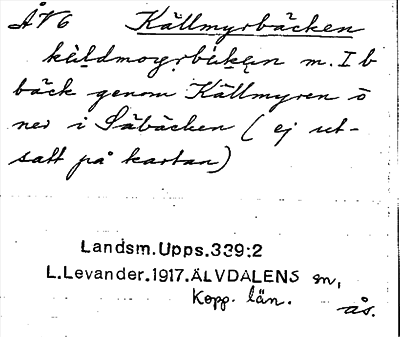 ÅV6 Källmyrbäcken
käldmoyrbäken m. I b
bäck genom Källmyren ö
ner i Såbäcken (ej ut-
satt på kartan)
Landsm.Upps.339:2
L.Levander.1917.ÄLVDALENS sn,
Kopp. län.
ås.